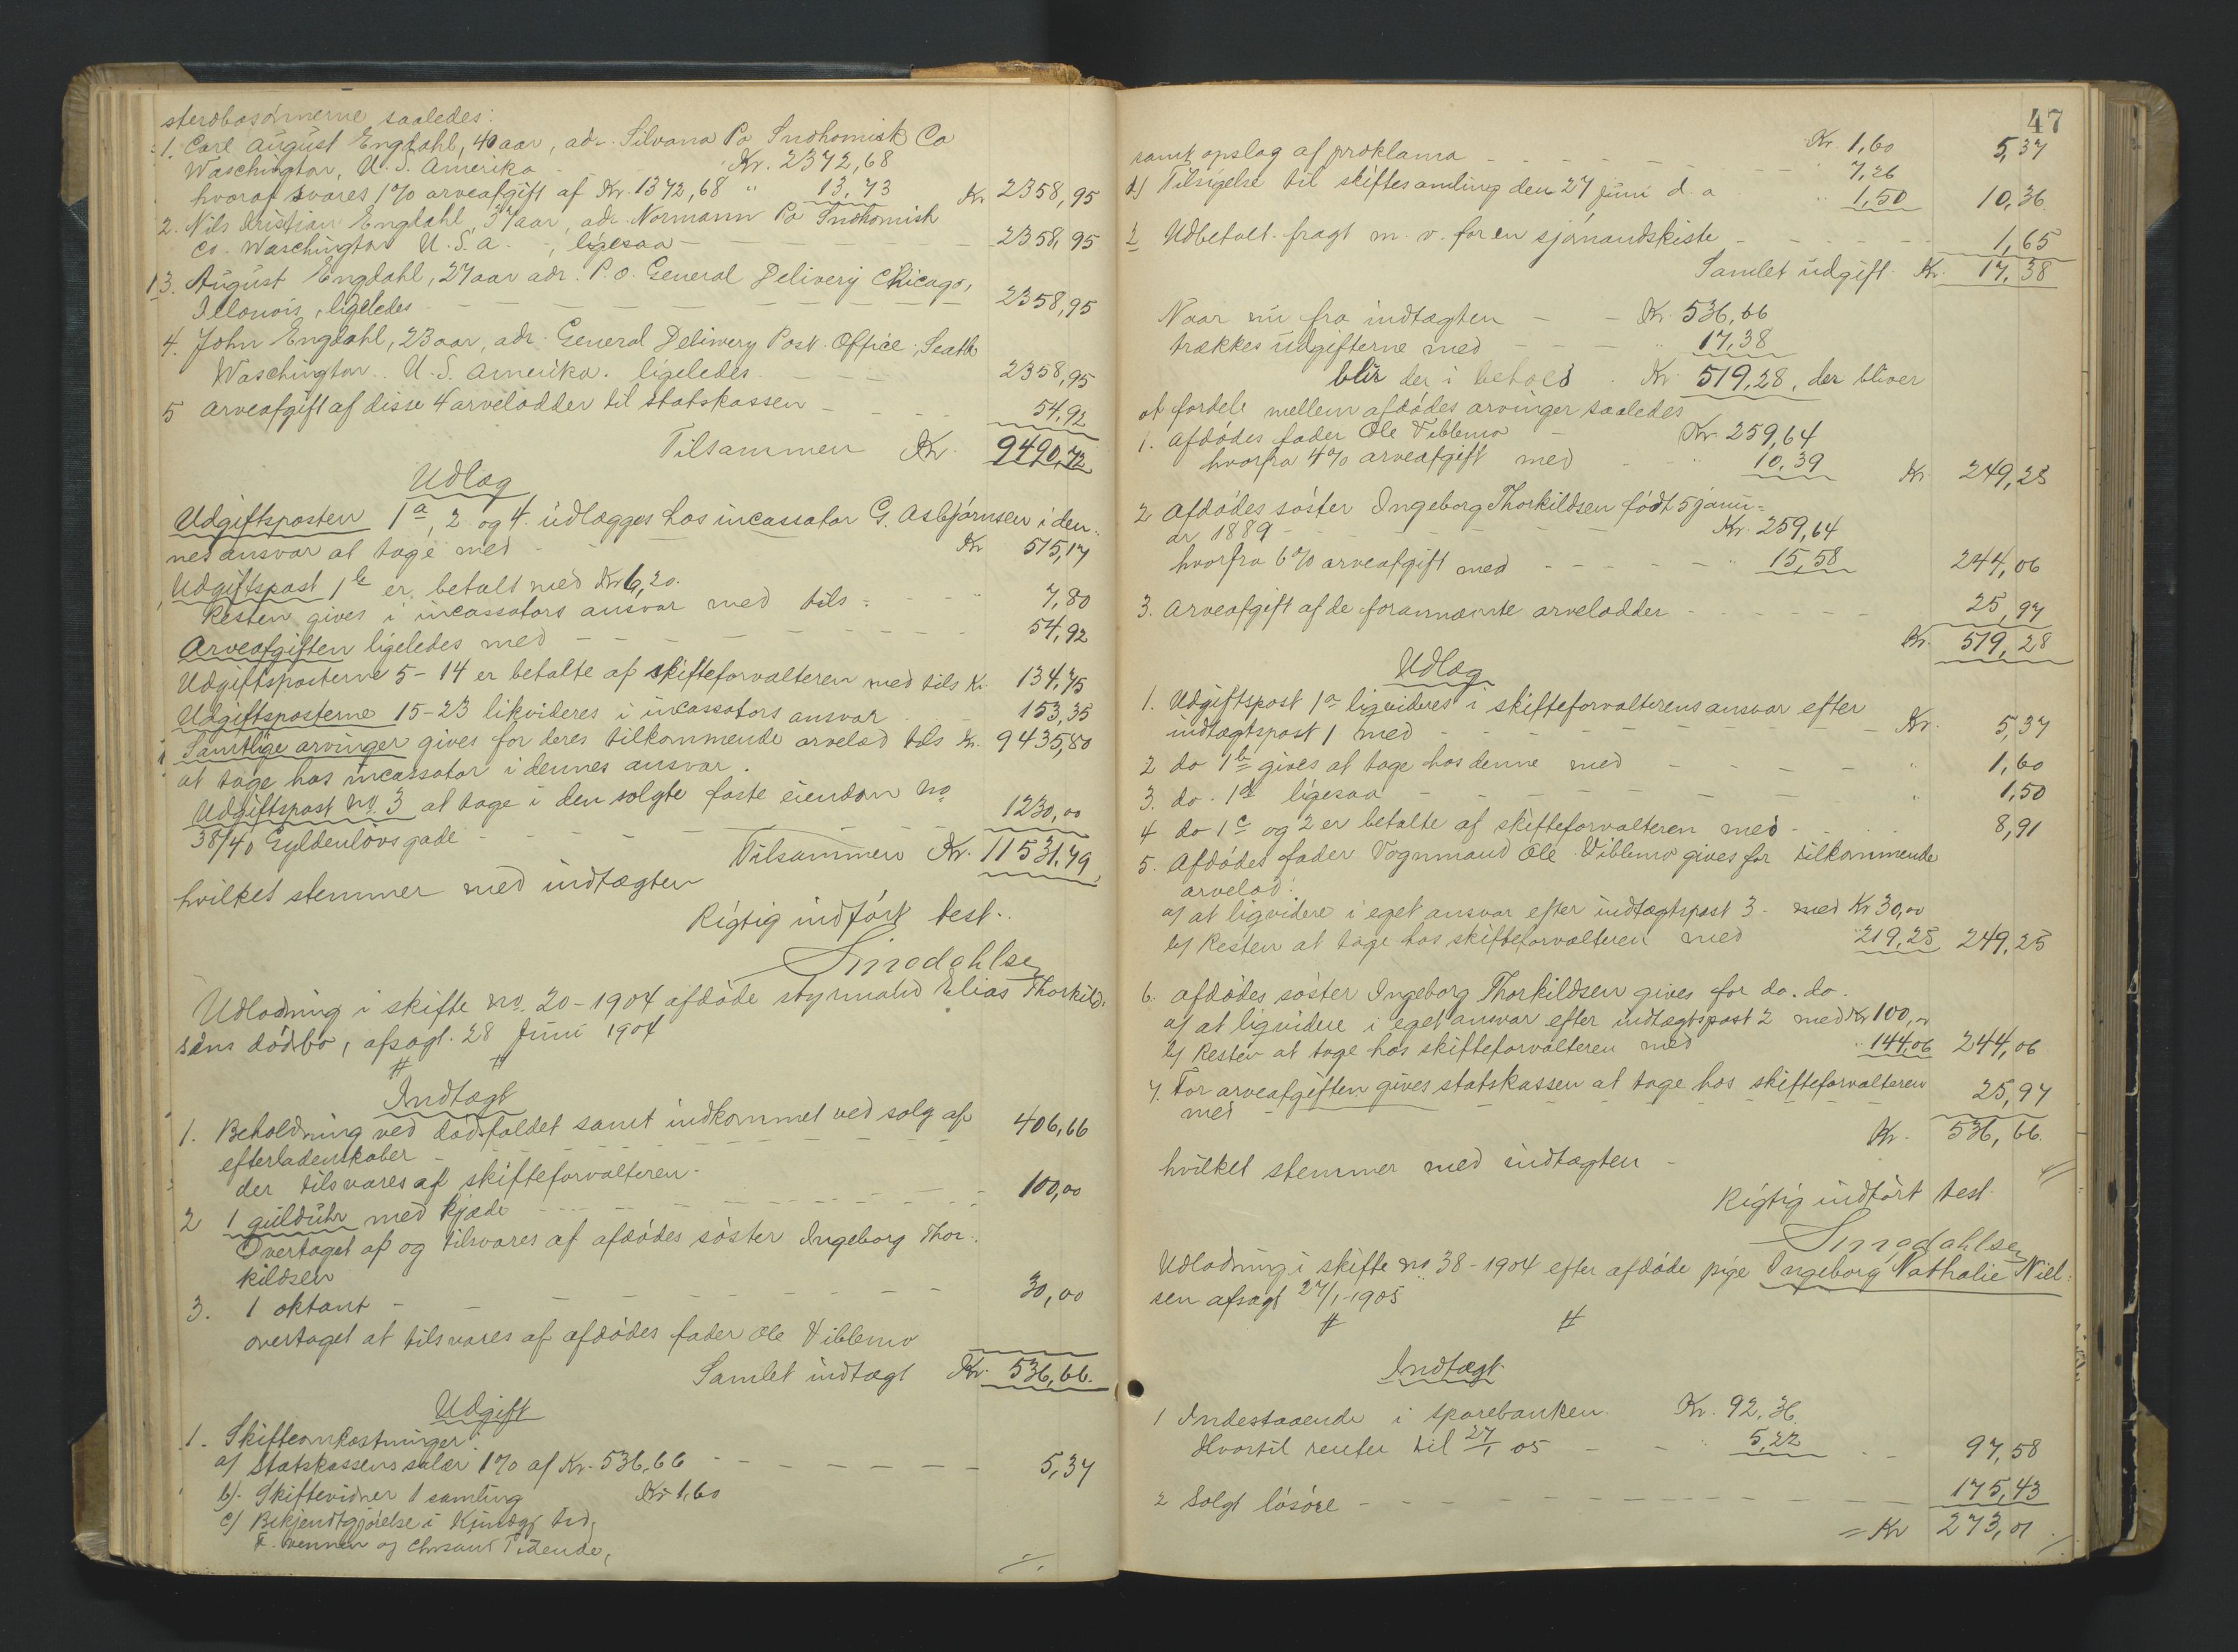 sterdbosønnerne saaledes:
1. Carl August Engdahl, 40 aar, adr. Silvana Po Snohomisk Co
Waschington, U. S. Amerika - Kr. 2372,68
hvoraf svares 1% arveafgift af Kr. 1372,68 " 13,73 Kr 2358,95
2. Nils Kristian Engdahl, 37 aar, adr. Normann Po Snohomish
Co. Waschington U. S. A. -, ligesaa - 2358,95
3. August Engdahl, 27 aar adr. P.O. General Delivery Chicago,
Illonois, ligeledes - 2358,95
4. John Engdahl, 23 aar, adr. General Delivery Post Office, Seatle
Waschington. U. S. Amerika. ligeledes - 2358,95
5 Arveafgift af disse 4 arvelodder til statskassen - 54,92
Tilsammen Kr. 9490,72
Udlæg
Udgiftsposten 1a, 2 og 4. udlægges hos incassator G. Asbjørnsen i den-
nes ansvar at tage med - Kr 515,17
Udgiftspost 1b er betalt med Kr 6,20.
Resten gives i incassators ansvar med tils. 7,80
Arveafgiften ligeledes med - 54,92
Udgiftsposterne 5-14 er betalte af skifteforvalteren med tils Kr. 134,75
Udgiftsposterne 15-23 likvideres i incassators ansvar - 153,35
Samtlige arvinger gives for deres tilkommende arvelod tils Kr. 9435,80
at tage hos incassator i dennes ansvar.
Udgiftspost no. 3 at tage i den solgte faste eiendom no
38/40 Gyldenløvsgade - 1230,00
Tilsammen Kr. 11531,79
hvilket stemmer med indtægten
Rigtig indført test..
Udlodning i skifte no. 20-1904 afdøde styrmand Elias Thorkild-
sens dødbo, afsagt. 28 Juni 1904
Indtægt
1. Beholdning ved dødsfaldet samt indkommet ved salg af
efterladenskaber - 406,66
der tilsvares af skifteforvalteren -
2 1 guldur med kjæde - 100,00
Overtaget af og tilsvares af afdødes søster Ingeborg Thor-
kildsen
3. 1 oktant - 30,00
overtaget at tilsvares af afdødes fader Ole Vibbemo
Samlet indtægt Kr. 536,66.
Udgift
1. Skifteomkostninger:
a) Statskassens salær 1% af Kr. 536,66 - 5,37
b). Skiftevidner 1 samling Kr 1,60
c) Bekjendtgjørelse i Kundgj. tid,
F. vennen og Chrsand Tidende,
47
samt opslag af proklama - Kr. 1,60 5,37
7,26
d) Tilsigelse til skiftesamling den 27 juni d. a " 1,50 10,36
2 Udbetalt fragt m. v. for en sjømandskiste - 1,65
Samlet udgift Kr. 17,38
Naar nu fra indtægten - Kr. 536,66
trækkes udgifterne med - " 17,38
blir der i behold Kr 519,28, der bliver
at fordele mellem afdødes arvinger saaledes
1. Afdødes fader Ole Vibbemo - Kr. 259,64
hvorfra 4% arveafgift med - 10,39 Kr. 249,25
2 Afdødes søster Ingeborg Thorkildsen født 5 janu-
ar 1889 - Kr. 259,64
hvorfra 6% arveafgift med - " 15,58 244,06
3. Arveafgift af de forannævnte arvelodder - 25,97
Kr. 519,28
Udlæg
1. Udgiftspost 1a ligvideres i skifteforvalterens ansvar efter
indtægtspost 1 med - Kr. 5,37
2 do 1b gives at tage hos denne med - " 1,60
3. do. 1d ligesaa - " 1,50
4 do 1c og 2 er betalte af skifteforvalteren med - 8,91
5. Afdødes fader Vognmand Ole Vibbemo gives for tilkommende
arvelod:
a) at ligvidere i eget ansvar efter indtægtspost 3 - med Kr 30,00
b) Resten at tage hos skifteforvalteren med " 219,25 249,25
6. Afdødes søster Ingeborg Thorkildsen gives for do. do.
a) at ligvidere i eget ansvar efter indtægtspost 2 med Kr 100,00
b) Resten at tage hos skifteforvalteren med " 144,06 244,06
7. For arveafgiften gives statskassen at tage hos skifteforvalteren
med - 25,97
Kr. 536,66.
hvilket stemmer med indtægten -
Rigtig indført test.
Udlodning i skifte no 38-1904 efter afdøde pige Ingeborg Nathalie Niel-
sen afsagt 27/1-1905
Indtægt
1 Indestaaende i sparebanken. Kr. 92,36.
Hvortil renter til 27/1 05 - " 5,22 - 97,58
2 Solgt løsøre - 175,43
= Kr 273,01.